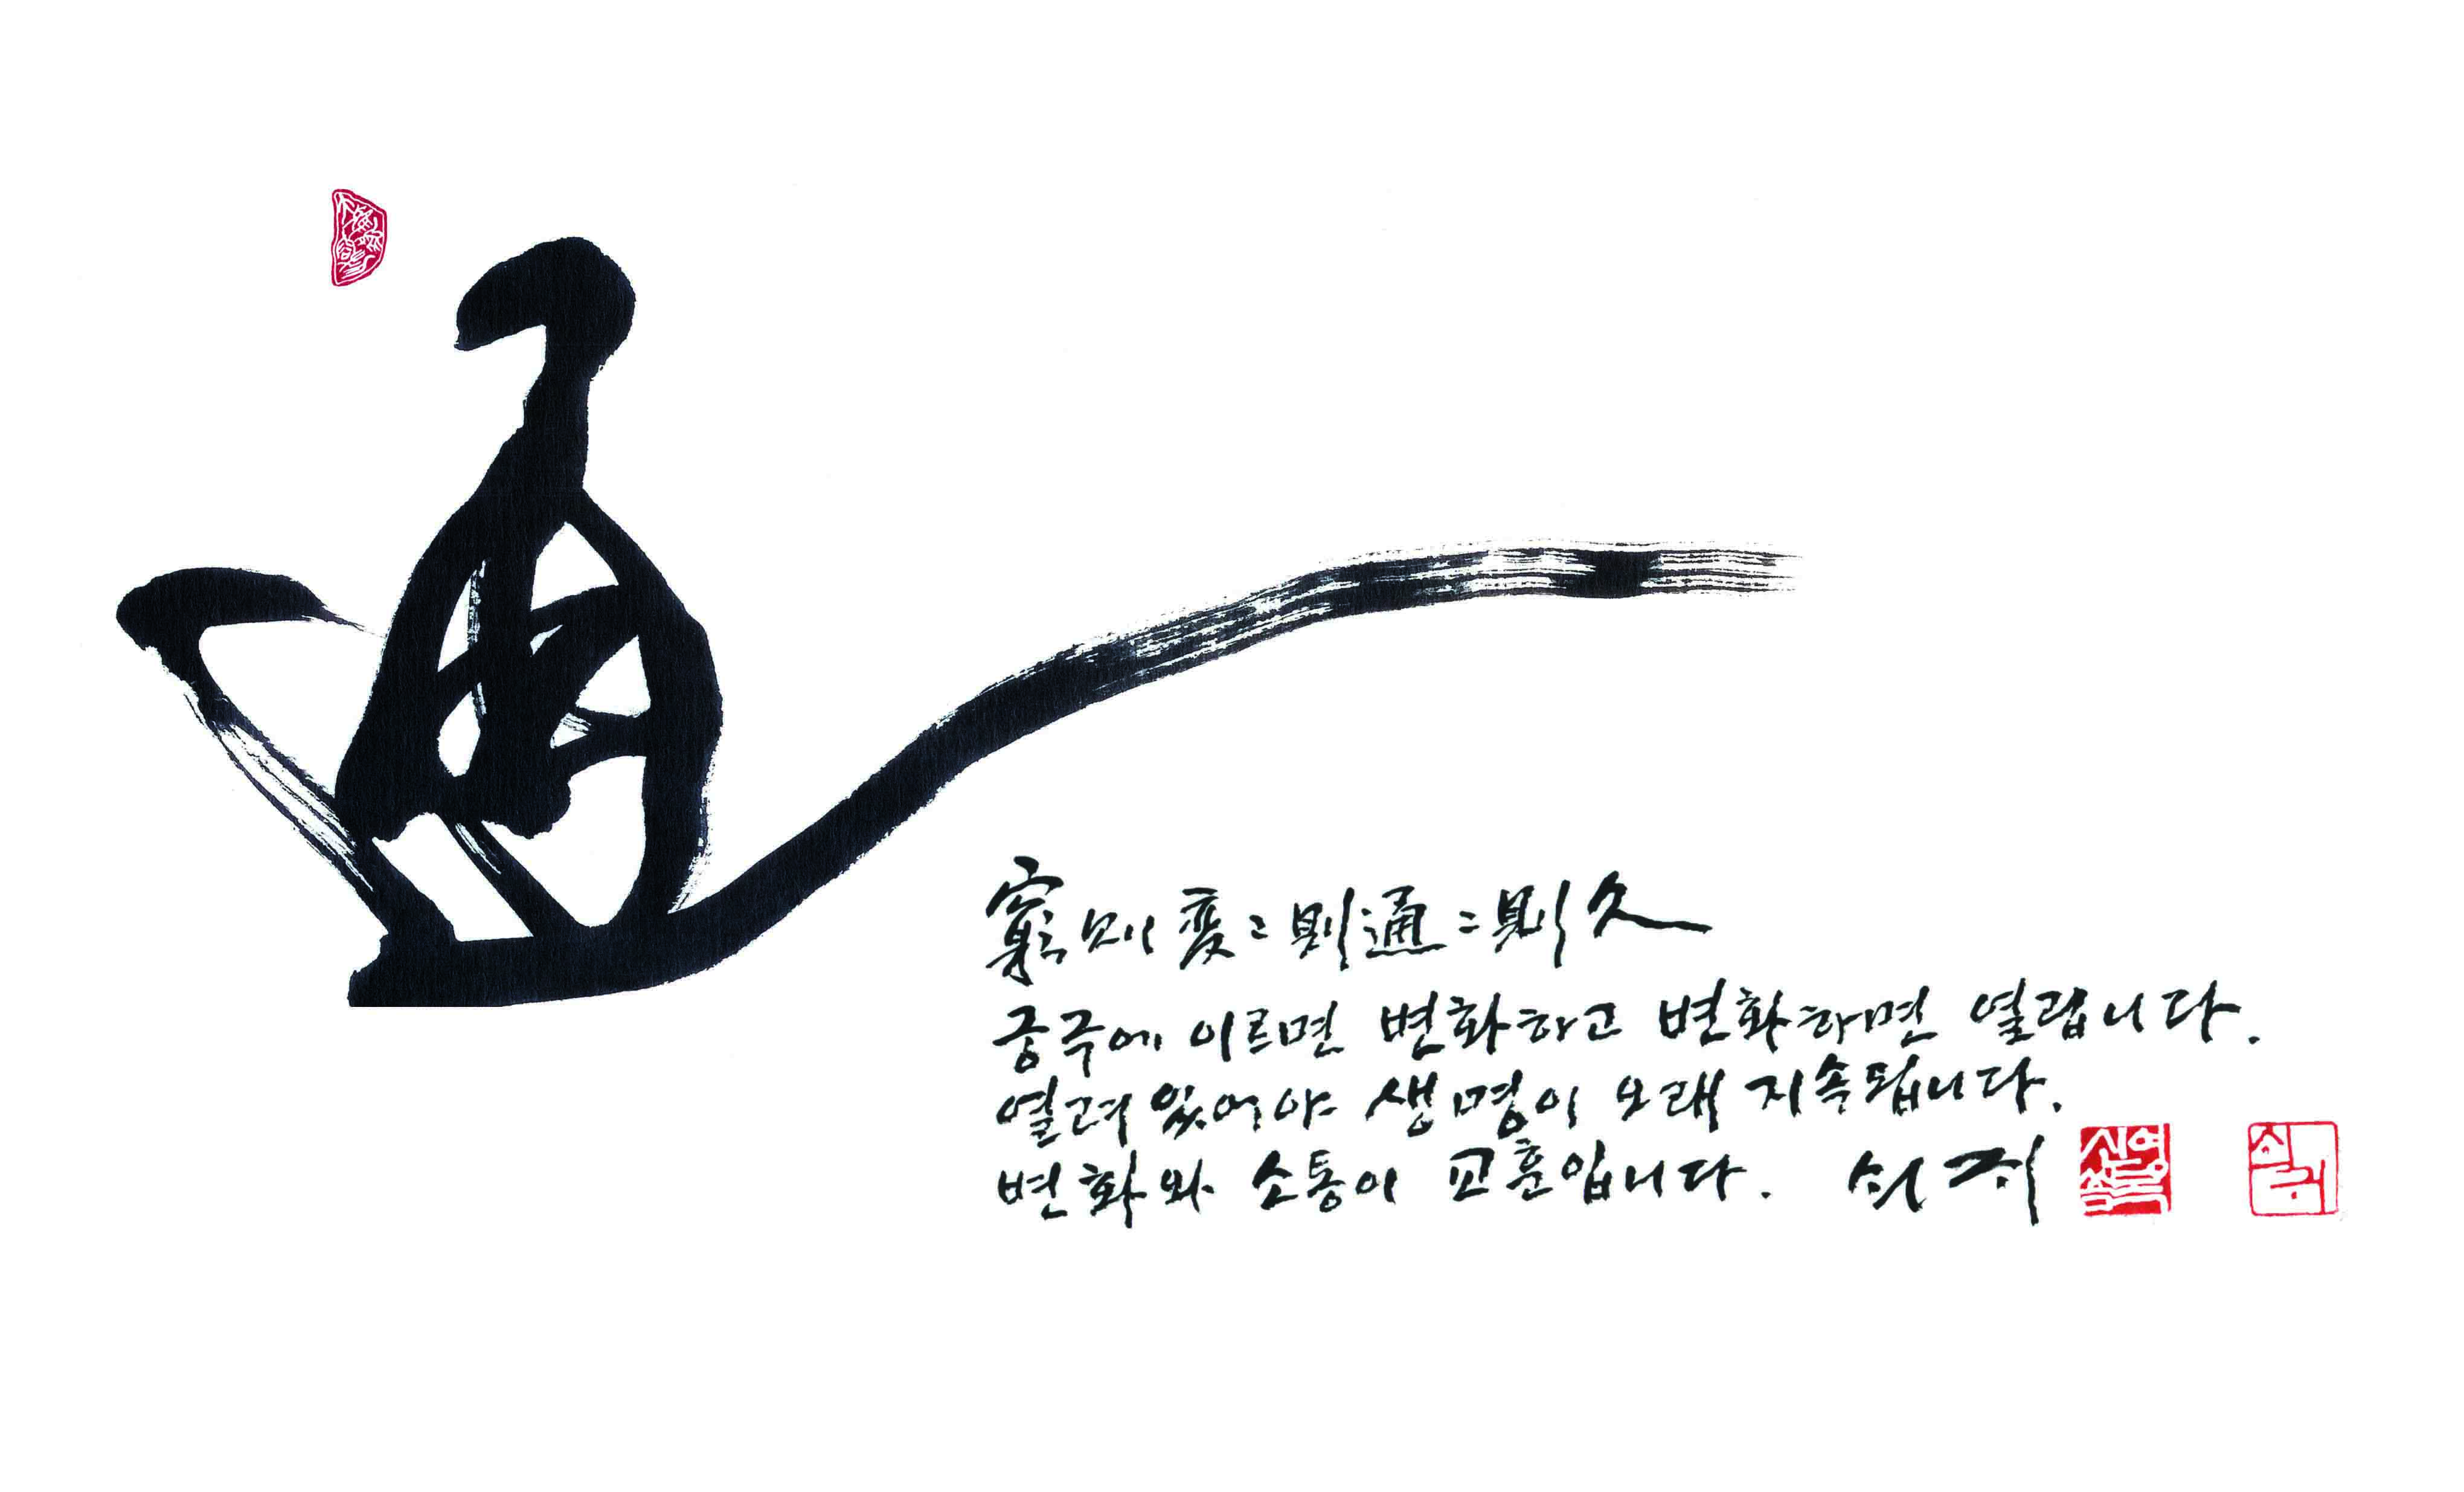 通
窮則変〻則通〻則久
궁극에 이르면 변화하고 변화하면 열립니다.
열려 있어야 생명이 오래 지속됩니다.
변화와 소통이 교훈입니다. 쇠귀
신영복
쇠귀